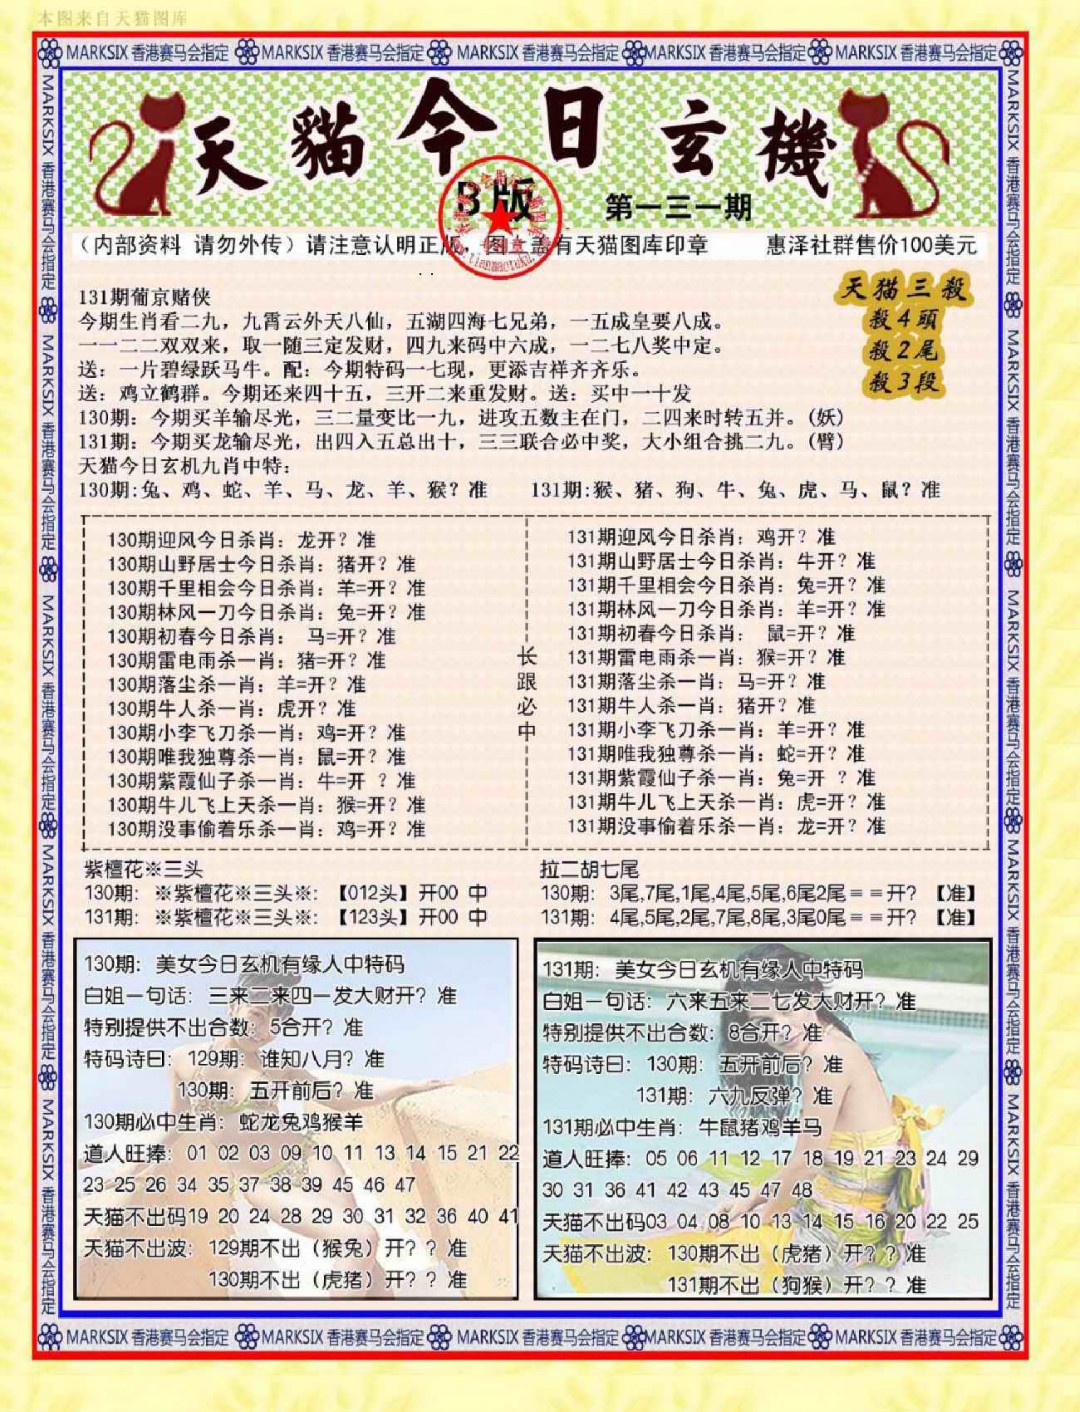 本图来自天猫图库
MARKSIX 香港赛马会指定 MARKSIX 香港赛马会指定 MARKSIX 香港赛马会指定 MARKSIX 香港赛马会指定 MARKSIX 香港赛马会指定
天貓今日玄機
B版
第一三一期
（内部资料 请勿外传）请注意认明正版，图上盖有天猫图库印章 惠泽社群售价100美元
天猫三殺
殺4頭
殺2尾
殺3段
131期葡京赌侠
今期生肖看二九，九霄云外天八仙，五湖四海七兄弟，一五成皇要八成。
一一二二双双来，取一随三定发财，四九来码中六成，一二七八奖中定。
送：一片碧绿跃马牛。配：今期特码一七现，更添吉祥齐齐乐。
送：鸡立鹤群。今期还来四十五，三开二来重发财。送：买中一十发
130期：今期买羊输尽光，三二量变比一九，进攻五数主在门，二四来时转五并。(妖)
131期：今期买龙输尽光，出四入五总出十，三三联合必中奖，大小组合挑二九。(臂)
天猫今日玄机九肖中特：
130期:兔、鸡、蛇、羊、马、龙、羊、猴？准 131期:猴、猪、狗、牛、兔、虎、马、鼠？准
130期迎风今日杀肖：龙开？准
130期山野居士今日杀肖：猪开？准
130期千里相会今日杀肖：羊=开？准
130期林风一刀今日杀肖：兔=开？准
130期初春今日杀肖： 马=开？准
130期雷电雨杀一肖：猪=开？准
130期落尘杀一肖：羊=开？准
130期牛人杀一肖：虎开？准
130期小李飞刀杀一肖：鸡=开？准
130期唯我独尊杀一肖：鼠=开？准
130期紫霞仙子杀一肖：牛=开 ？准
130期牛儿飞上天杀一肖：猴=开？准
130期没事偷着乐杀一肖：鸡=开？准
长跟必中
131期迎风今日杀肖：鸡开？准
131期山野居士今日杀肖：牛开？准
131期千里相会今日杀肖：兔=开？准
131期林风一刀今日杀肖：羊=开？准
131期初春今日杀肖： 鼠=开？准
131期雷电雨杀一肖：猴=开？准
131期落尘杀一肖：马=开？准
131期牛人杀一肖：猪开？准
131期小李飞刀杀一肖：羊=开？准
131期唯我独尊杀一肖：蛇=开？准
131期紫霞仙子杀一肖：兔=开 ？准
131期牛儿飞上天杀一肖：虎=开？准
131期没事偷着乐杀一肖：龙=开？准
紫檀花※三头
130期：※紫檀花※三头※：【012头】开00 中
131期：※紫檀花※三头※：【123头】开00 中
拉二胡七尾
130期：3尾,7尾,1尾,4尾,5尾,6尾2尾＝＝开？【准】
131期：4尾,5尾,2尾,7尾,8尾,3尾0尾＝＝开？【准】
130期：美女今日玄机有缘人中特码
白姐一句话：三来二来四一发大财开？准
特别提供不出合数：5合开？准
特码诗曰：129期：谁知八月？准
130期：五开前后？准
130期必中生肖：蛇龙兔鸡猴羊
道人旺捧：01 02 03 09 10 11 13 14 15 21 22
23 25 26 34 35 37 38 39 45 46 47
天猫不出码19 20 24 28 29 30 31 32 36 40 41
天猫不出波：129期不出（猴兔）开？？准
130期不出（虎猪）开？？准
131期：美女今日玄机有缘人中特码
白姐一句话：六来五来二七发大财开？准
特别提供不出合数：8合开？准
特码诗曰：130期：五开前后？准
131期：六九反弹？准
131期必中生肖：牛鼠猪鸡羊马
道人旺捧：05 06 11 12 17 18 19 21 23 24 29
30 31 36 41 42 43 45 47 48
天猫不出码03 04 08 10 13 14 15 16 20 22 25
天猫不出波：130期不出（虎猪）开？？准
131期不出（狗猴）开？？准
MARKSIX 香港赛马会指定 MARKSIX 香港赛马会指定 MARKSIX 香港赛马会指定 MARKSIX 香港赛马会指定 MARKSIX 香港赛马会指定